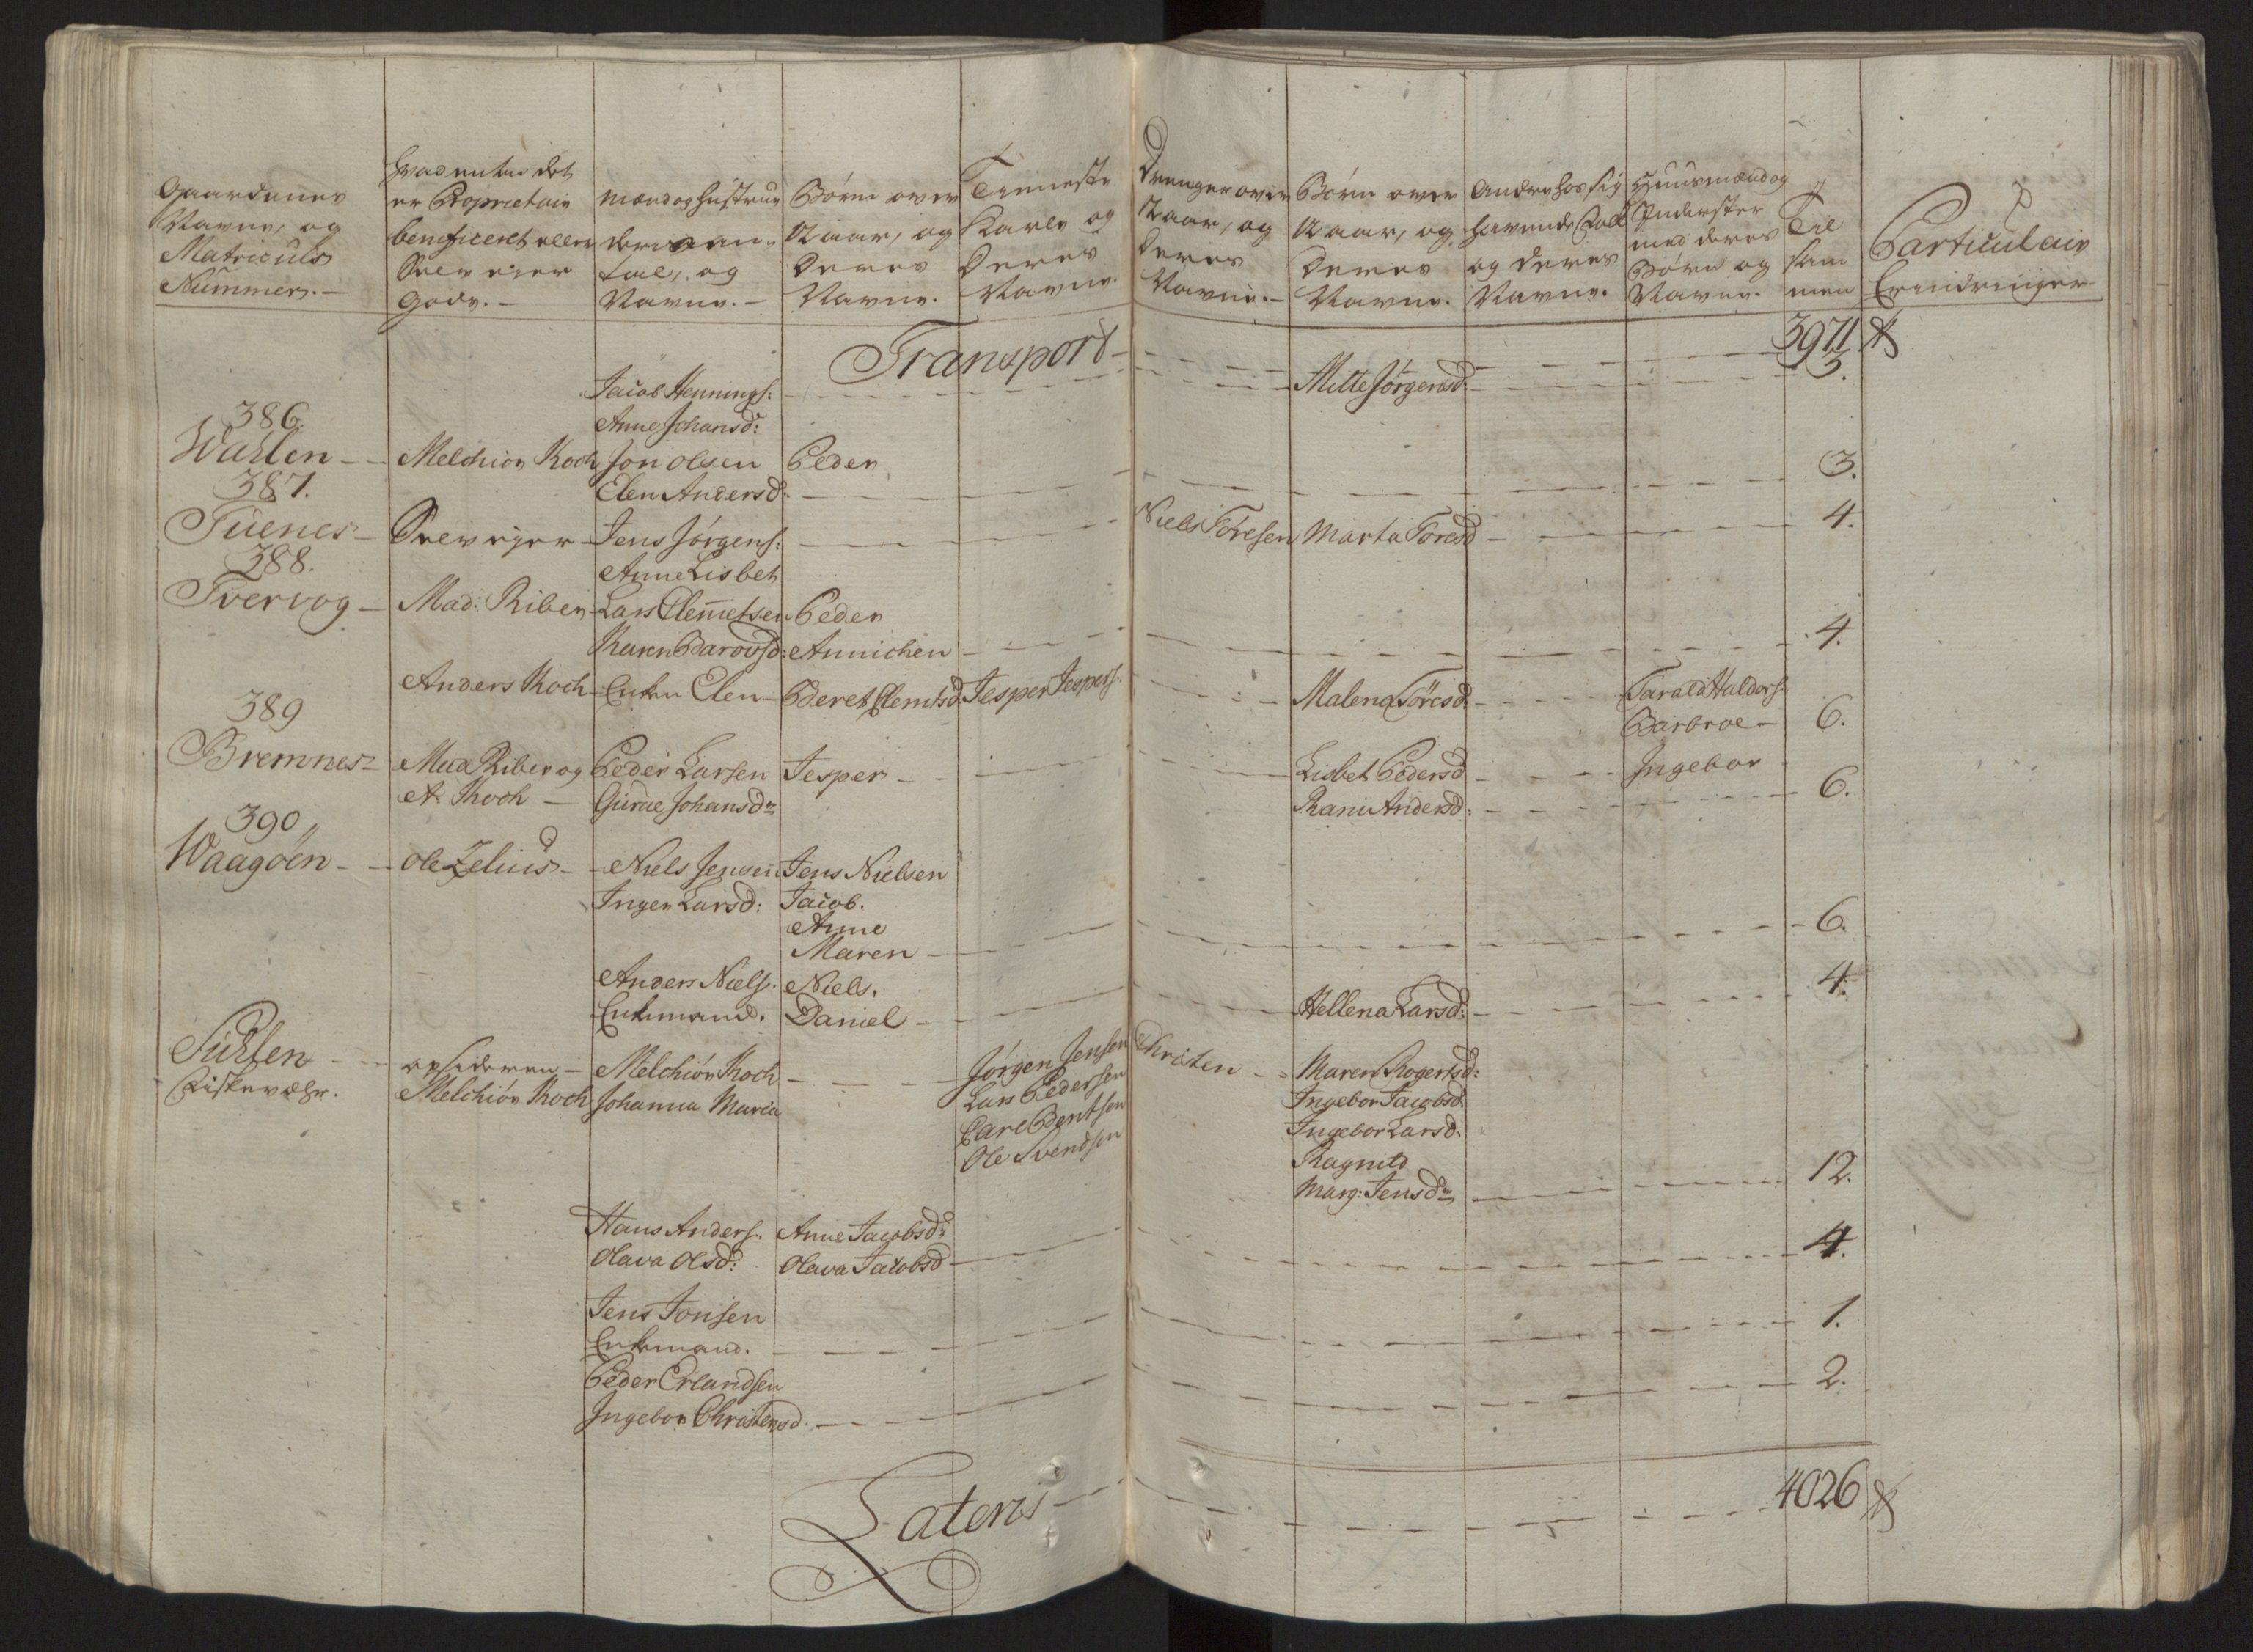 Gaardenes Navne, og Matriculs Nummer.
Hvad enten det er Proprietair beneficeret eller Selv eyer Gods.
Mænd og Hustruer Navne.
Børn over 12 aar, og Deres Navne.
Tienneste Karle og Deres Navne.
Drenger over 12 aar, og Deres Navne.
Børn over 12 aar, og Deres Navne.
Andre hos sig havende Folk og Deres Navne.
Huusmænd og Inderster med deres Børn og Navne.
Til sammen
Particulair Erindringer
Transport 3971
Jacob Hennings: Mette Jørgensd: 3.
Anne Johansd:
386.
Wahlen Melchior Koch Jon Olsen Peder
Elen Andersd: 3.
387.
Tuenes Selv eyer Jens Jørgens: Niels Toresen Marta Toresd 4.
Anne Lisbet
388.
Tvervog Mad: Riber Lars Clemetsen Peder
Karen Barovsd: Annichen 4.
Anders Koch Enke Elen Beret Clemtsd Jesper Jespers. Malena Toresd: Tarald Haldors.
Barbroe 6.
Ingebor
389
Bremnes Mad Riber og Peder Larsen Jesper Lisbet Pedersd
A. Koch Gurue Johansdr Rani Andersd: 6.
390
Waagøen Ole Zelius Niels Jensen Jens Nielsen
Inger Larsd: Jacob.
Anne
Maren 6.
Anders Niels. Niels. 4.
Enkemand. Daniel Hellena Larsd:
Suhlen opsidderen Melchior Koch Jørgen Jensen Christen Maren Rogertsd:
Fiskevær. Melchior Koch Johanna Maria Lars Pedersen Ingebor Jacobsd:
Carl Bentsen Ingebor Larsd.
Ole Svendsen Ragnild
Marg: Jensdr 12.
Hans Anders. Anne Jacobsd:
Olava Olsd: Olava Jacobsd 4.
Jens Jonsen 1.
Enkemand.
Peder Erlandsen 2.
Ingebor Christensd.
Lateris 4026